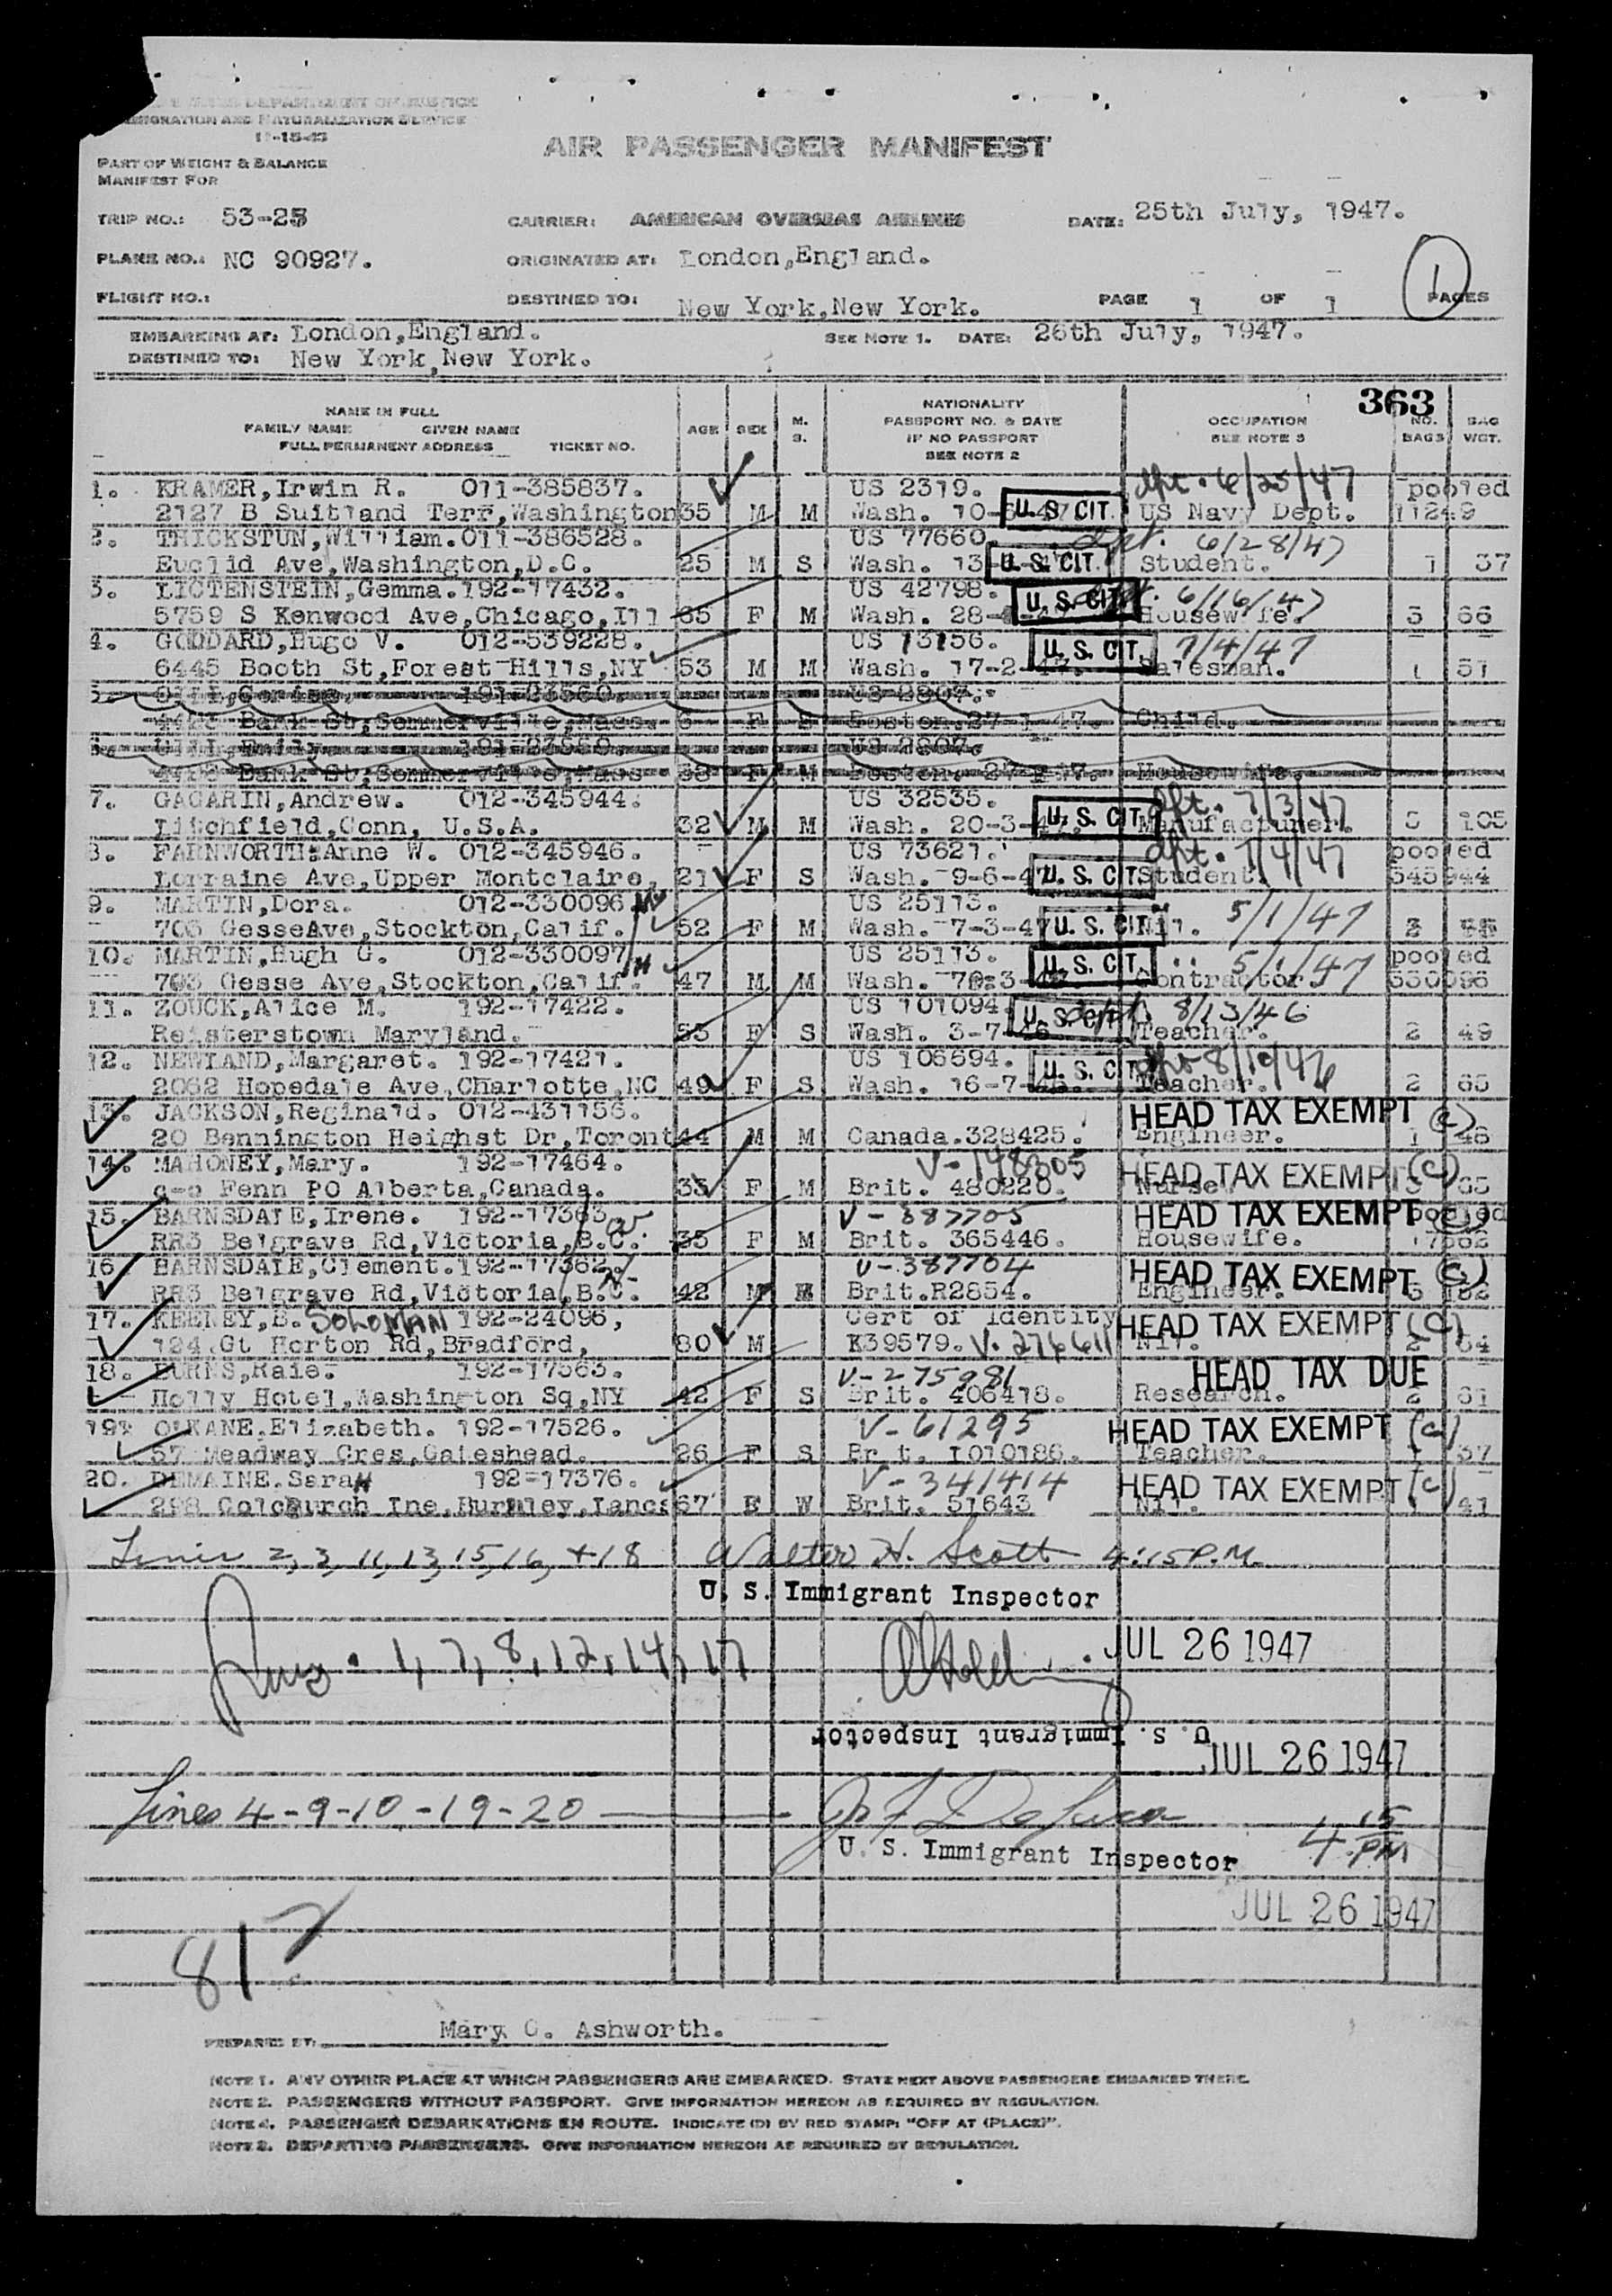 DEPARTMENT OF JUSTICE
IMMIGRATION AND NATURALIZATION SERVICE
11-15-45
PART OF WEIGHT & BALANCE
MANIFEST FOR
AIR PASSENGER MANIFEST
TRIP NO.: 53-25 CARRIER: AMERICAN OVERSEAS AIRLINES DATE: 25th July, 1947.
PLANE NO.: NC 90927. ORIGINATED AT: London,England.
FLIGHT NO.: DESTINED TO: New York,New York. PAGE 1 OF 1 PAGES
1
EMBARKING AT: London,England. SEE NOTE 1. DATE: 26th July, 1947.
DESTINED TO: New York,New York.
363
NAME IN FULL
FAMILY NAME GIVEN NAME
FULL PERMANENT ADDRESS TICKET NO.
AGE SEX M. S.
NATIONALITY
PASSPORT NO. & DATE
IF NO PASSPORT
SEE NOTE 2
OCCUPATION
SEE NOTE 3
NO. BAGS BAG WGT.
1. KRAMER,Irwin R. 011-385837. US 2319. dpt. 6/25/47 pooled
2127 B Suitland Terr,Washington 35 M M Wash. 10- U. S. CIT. US Navy Dept. 11249
2. THICKSTUN,William.011-386528. US 77660. dpt. 6/28/47
Euclid Ave,Washington,D.C. 25 M S Wash. 13- U. S. CIT. Student. 1 37
3. LICTENSTEIN,Gemma.192-17432. US 42798. 6/16/47
5759 S Kenwood Ave,Chicago,Ill 65 F M Wash. 28- U. S. CIT. Housewife. 3 66
4. GODDARD,Hugo V. 012-539228. US 13156. 7/4/47
6445 Booth St,Forest Hills,NY 53 M M Wash. 17-2-47. U. S. CIT. Salesman. 1 51
5. 191-23560. US 2807.
Bank St,Sommerville,Mass. F S Boston.27- 47. Child.
US 2807.
Bank St,Sommerville,Mass F M Boston. Housewife.
7. GAGARIN,Andrew. 012-345944. US 32535. dpt. 7/3/47
Litchfield,Conn, U.S.A. 32 M M Wash. 20-3-47. U. S. CIT. Manufacturer. 5 105
8. FARNWORTH:Anne W. 012-345946. US 73621. dpt. 7/4/47 pooled
Lorraine Ave,Upper Montclaire, 21 F S Wash. 9-6-47 U. S. CIT. Student. 345944
9. MARTIN,Dora. 012-330096 US 25113. 5/1/47
703 GesseAve,Stockton,Calif. 52 F M Wash. 7-3-47 U. S. CIT. Nil. 3
10. MARTIN,Hugh G. 012-330097 US 25113. 5/1/47 pooled
703 Gesse Ave,Stockton,Calif. 47 M M Wash. U. S. CIT. Contractor. 330096
11. ZOUCK,Alice M. 192-17422. US 101094. dpt. 8/13/46
Reisterstown Maryland. 55 F S Wash. 3-7-46 U. S. CIT. Teacher. 2 49
12. NEWLAND,Margaret. 192-17421. US 106694. 8/10/46
2062 Hopedale Ave,Charlotte,NC 49 F S Wash. 16-7-46. U. S. CIT. Teacher. 2 65
13. JACKSON,Reginald. 012-431156. HEAD TAX EXEMPT (c)
20 Bennington Heighst Dr,Toront 44 M M Canada.328425. Engineer. 1 46
14. MAHONEY,Mary. 192-17464. V-148305 HEAD TAX EXEMPT (c)
c-o Fenn PO Alberta,Canada. 33 F M Brit. 480220. Nurse. 3 65
15. BARNSDALE,Irene. 192-17363 V-387705 HEAD TAX EXEMPT (c) pooled
RR3 Belgrave Rd,Victoria,B.C. 35 F M Brit. 365446. Housewife. 17362
16. BARNSDALE,Clement.192-17362. V-387704 HEAD TAX EXEMPT (c)
RR3 Belgrave Rd,Victoria,B.C. 42 M M Brit.R2854. Engineer.
17. KEENEY,B. SOLOMAN 192-24096, Cert of Identity HEAD TAX EXEMPT (c)
124.Gt Horton Rd,Bradford, 80 M K39579. V.276611 Nil. 2 64
18. BURNS,Raie. 192-17563. V-275981 HEAD TAX DUE
Holly Hotel,Washington Sq,NY 42 F S Brit. 406418. Research. 2 61
19. OLKANE,Elizabeth. 192-17526. V-61295 HEAD TAX EXEMPT (c)
57 Meadway Cres,Gateshead. 26 F S Brit. 1010186. Teacher. 1 37
20. DEMAINE.SaraH 192-17376. V-341414 HEAD TAX EXEMPT (c)
298 Colnchurch Lne,Burnley,Lancs 67 F W Brit. 51643 Nil. 1 41
Lines 2, 3, 11, 13, 15, 16, + 18 Walter H. Scott 4:15 P.M.
U. S. Immigrant Inspector
Lines. 1, 7, 8, 12, 14, 17 JUL 26 1947
U. S. Immigrant Inspector
JUL 26 1947
Lines 4-9-10-19-20
U. S. Immigrant Inspector 4 15 PM
JUL 26 1947
81
PREPARED BY: Mary O. Ashworth.
NOTE 1. ANY OTHER PLACE AT WHICH PASSENGERS ARE EMBARKED. STATE NEXT ABOVE PASSENGERS EMBARKED THERE.
NOTE 2. PASSENGERS WITHOUT PASSPORT. GIVE INFORMATION HEREON AS REQUIRED BY REGULATION.
NOTE 4. PASSENGER DEBARKATIONS EN ROUTE. INDICATE (D) BY RED STAMP: "OFF AT (PLACE)".
NOTE 3. DEPARTING PASSENGERS. GIVE INFORMATION HEREON AS REQUIRED BY REGULATION.